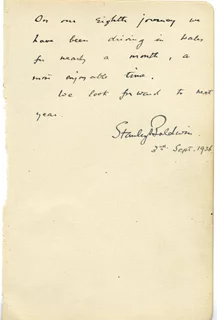 On our eighth journey we
have been driving in Wales
for nearly a month, a
most enjoyable time.
We look forward to next
year.
Stanley Baldwin
2nd Sept. 1936